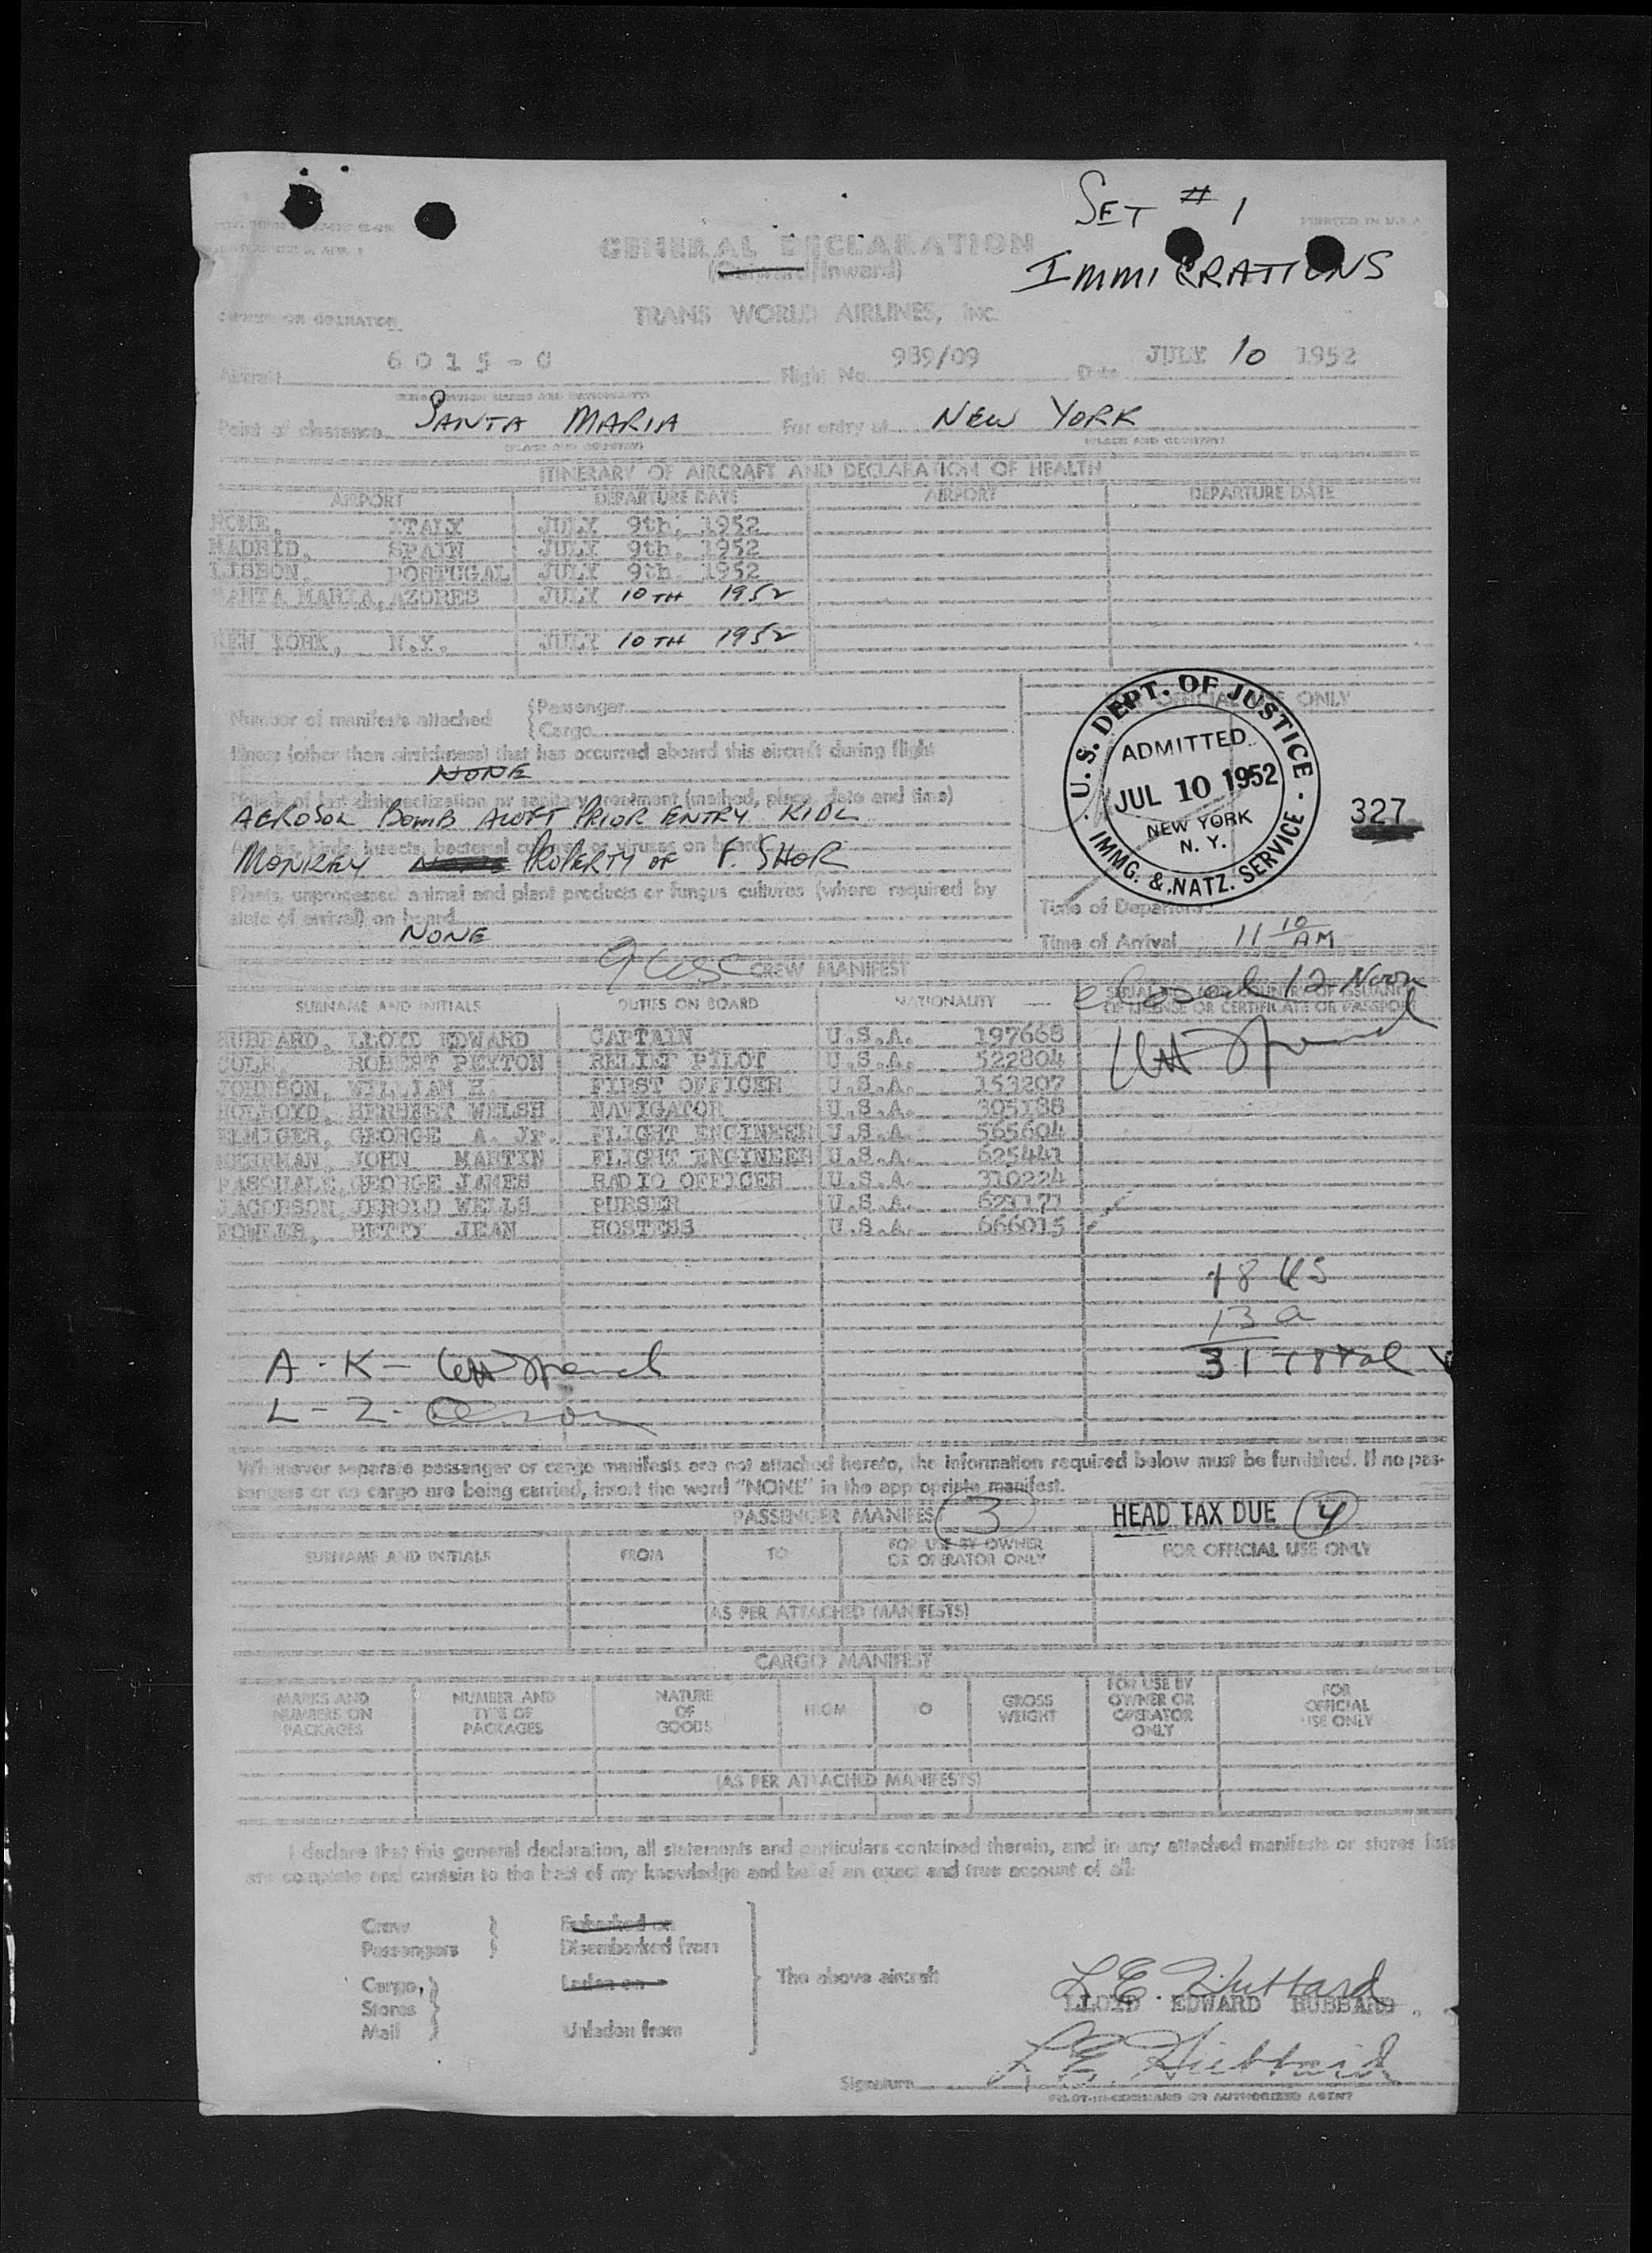 SET # 1
PRINTED IN U.S.A.
GENERAL DECLARATION
(Outward/Inward)
IMMIGRATIONS
OWNER OR OPERATOR
TRANS WORLD AIRLINES, INC.
Aircraft 6015-C Flight No. 939/09 Date JULY 10 1952
(REGISTRATION MARKS AND NATIONALITY)
Point of clearance SANTA MARIA For entry at NEW YORK
(PLACE AND COUNTRY) (PLACE AND COUNTRY)
ITINERARY OF AIRCRAFT AND DECLARATION OF HEALTH
AIRPORT DEPARTURE DATE AIRPORT DEPARTURE DATE
ROME, ITALY JULY 9th, 1952
MADRID, SPAIN JULY 9th, 1952
LISBON, PORTUGAL JULY 9th, 1952
SANTA MARIA, AZORES JULY 10TH 1952
NEW YORK, N.Y. JULY 10TH 1952
FOR OFFICIAL USE ONLY
Number of manifests attached { Passenger
{ Cargo
Illness (other than airsickness) that has occurred aboard this aircraft during flight
NONE
Details of last disinsectization or sanitary treatment (method, place, date and time)
AEROSOL BOMB ALOFT PRIOR ENTRY KIDL
Animals, birds, insects, bacterial cultures or viruses on board
MONKEY PROPERTY OF F. SHOR
Plants, unprocessed animal and plant products or fungus cultures (where required by
state of arrival) on board
NONE
U.S. DEPT. OF JUSTICE
ADMITTED
JUL 10 1952
NEW YORK
N. Y.
IMMG. & NATZ. SERVICE
327
Time of Departure
Time of Arrival 11 10 AM
9 usc
CREW MANIFEST
closed 12 Noon
SURNAME AND INITIALS DUTIES ON BOARD NATIONALITY SERIAL NO. AND COUNTRY OF ISSUANCE
OF LICENSE OR CERTIFICATE OR PASSPORT
HUBBARD, LLOYD EDWARD CAPTAIN U.S.A. 197668
COLE, ROBERT PEYTON RELIEF PILOT U.S.A. 522804
JOHNSON, WILLIAM H. FIRST OFFICER U.S.A. 153207
HOLROYD, HERBERT WELSH NAVIGATOR U.S.A. 305188
GEORGE A. Jr. FLIGHT ENGINEER U.S.A. 565604
JOHN MARTIN FLIGHT ENGINEER U.S.A. 625441
PASQUALE, GEORGE JAMES RADIO OFFICER U.S.A. 310224
JACOBSON, JEROLD WELLS PURSER U.S.A. 621171
FOWLER, BETTY JEAN HOSTESS U.S.A. 666015
18 US
13 a
31 Total
A - K -
L - Z -
Whenever separate passenger or cargo manifests are not attached hereto, the information required below must be furnished. If no pas-
sengers or no cargo are being carried, insert the word "NONE" in the appropriate manifest.
PASSENGER MANIFEST 3 HEAD TAX DUE 4
SURNAME AND INITIALS FROM TO FOR USE BY OWNER
OR OPERATOR ONLY FOR OFFICIAL USE ONLY
(AS PER ATTACHED MANIFESTS)
CARGO MANIFEST
MARKS AND
NUMBERS ON
PACKAGES
NUMBER AND
TYPE OF
PACKAGES
NATURE
OF
GOODS
FROM
TO
GROSS
WEIGHT
FOR USE BY
OWNER OR
OPERATOR
ONLY
FOR
OFFICIAL
USE ONLY
(AS PER ATTACHED MANIFESTS)
I declare that this general declaration, all statements and particulars contained therein, and in any attached manifests or stores lists
are complete and contain to the best of my knowledge and belief an exact and true account of all:
Crew
Passengers
Embarked on
Disembarked from
Cargo,
Stores
Mail
Laden on
Unladen from
The above aircraft
L.E. Hubbard
LLOYD EDWARD HUBBARD
L.E. Hubbard
Signature
PILOT-IN-COMMAND OR AUTHORIZED AGENT